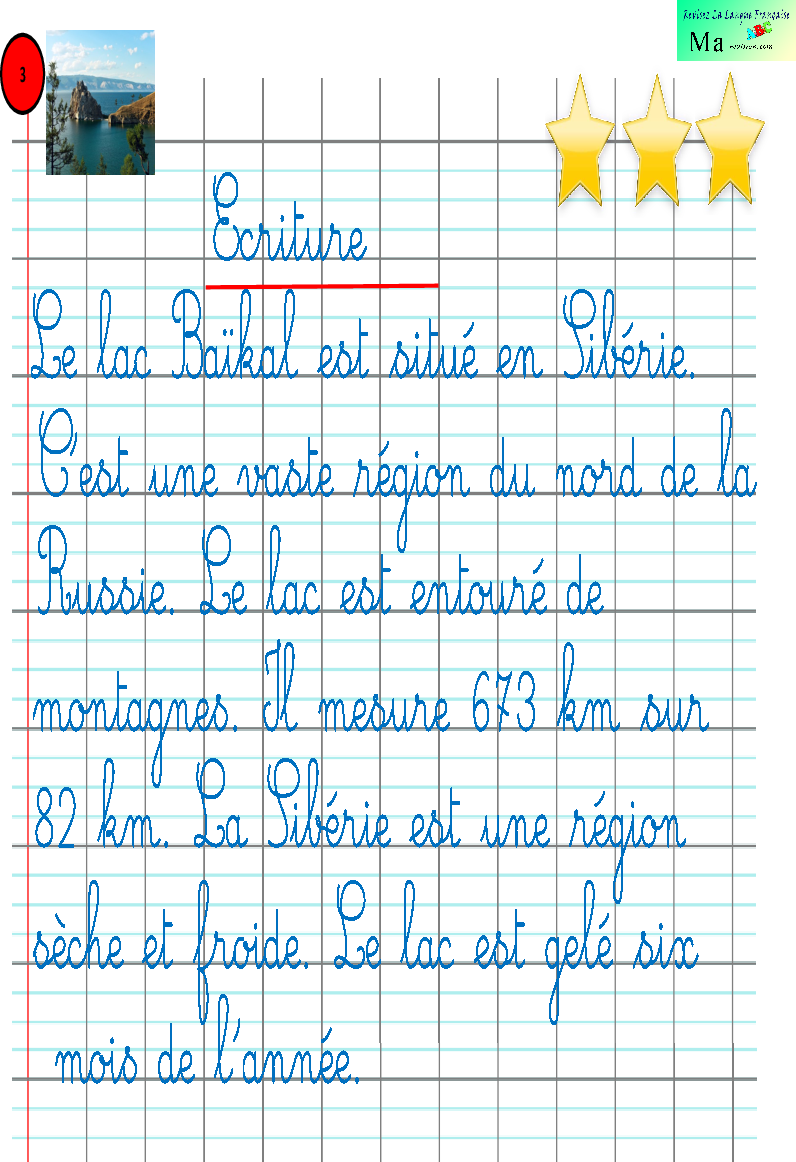 Revisez La Langue Française
Ma
revision.com
3
Ecriture
Le lac Baïkal est situé en Sibérie.
C'est une vaste région du nord de la
Russie. Le lac est entouré de
montagnes. Il mesure 673 km sur
82 km. La Sibérie est une région
sèche et froide. Le lac est gelé six
mois de l'année.